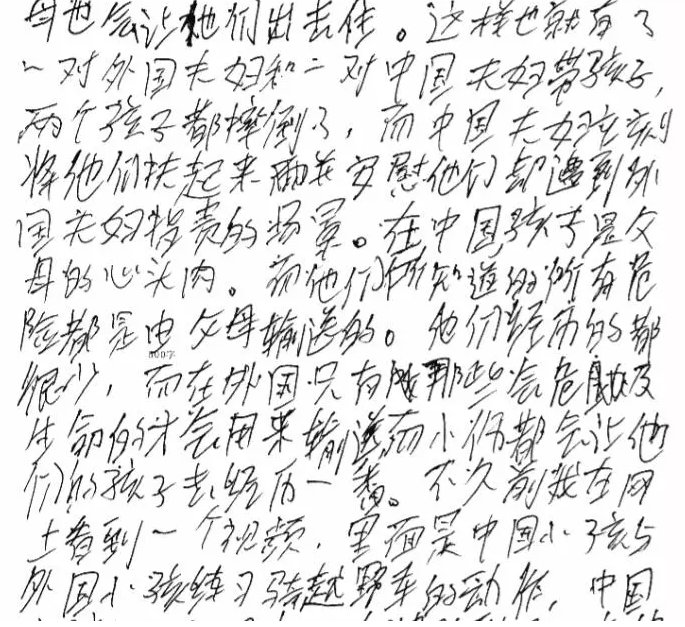 母也会让他们出去住。这样也就有了
一对外国夫妇和一对中国夫妇带孩子,
两个孩子都摔倒了,而中国夫妇立刻
将他们扶起来并安慰他们却遇到外
国夫妇指责的场景。在中国,孩子是父
母的心头肉。而他们所知道的所有危
险都是由父母输送的。他们经历的都
很少,而在外国只有那些会危及
生命的才会用来输送而小伤都会让他
们的孩子去经历一番。不久前我在网
上看到一个视频,里面是中国小孩与
外国小孩练习骑越野车的动作,中国